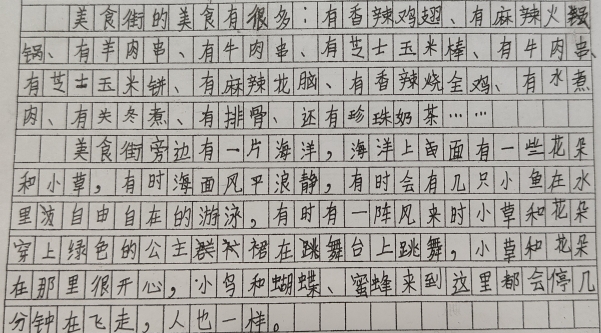 美食街的美食有很多：有香辣鸡翅、有麻辣火
锅、有羊肉串、有牛肉串、有芝士玉米棒、有牛肉串、
有芝士玉米饼、有麻辣花脑、有香辣烧全鸡、有水煮
肉、有关冬煮、有排骨、还有珍珠奶茶……
美食街旁边有一片海洋，海洋上面有一些花朵
和小草，有时海面风平浪静，有时会有几只小鱼在水
里自由自在的游泳，有时有一阵风来时小草和花朵
穿上绿色的公主裙在跳舞台上跳舞，小草和花朵
在那里很开心，小鸟和蝴蝶、蜜蜂来到这里都会停几
分钟在飞走，人也一样。